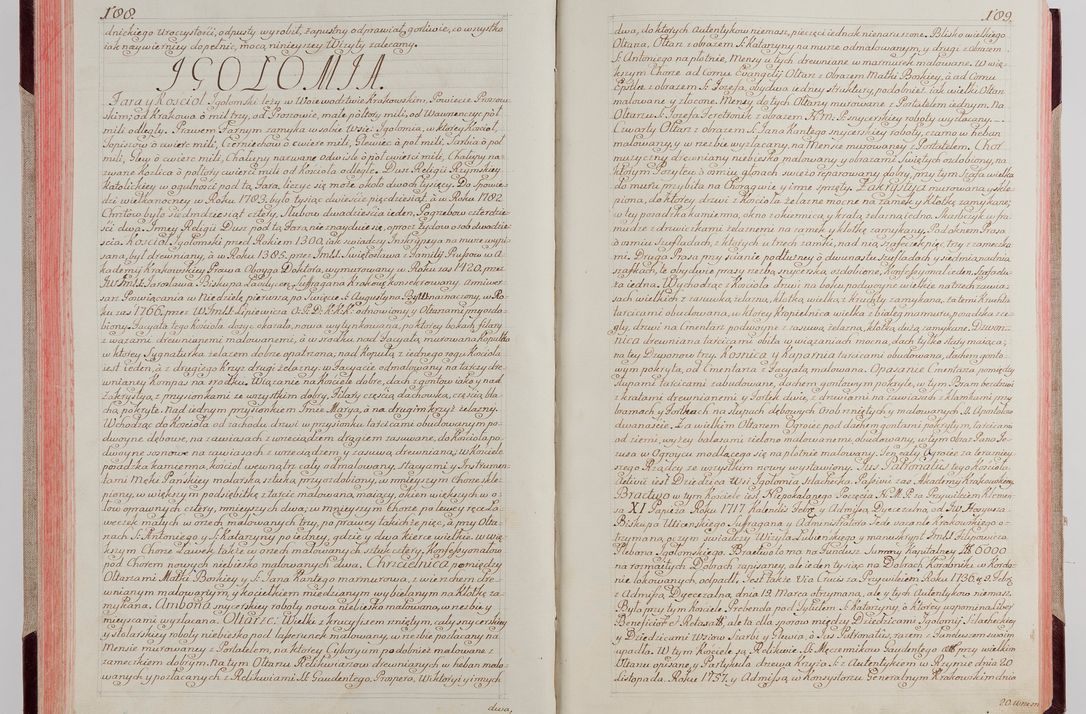 188.
dnickiego Uroczystości, odpusty wyrobił, zapustny odprawiał, gorliwie, co wszystko
iak naywierniey dopełnić, mocą ninieyszey Wizyty zalecamy.
IGOŁOMIA.
Fara y Kościoł Igołomski leży w Woiewodztwie Krakowskim, Powiecie Proszow-
skim; od Krakowa ô mil trzy, od Proszowic, małe połtory mili, od Wawrzeńczyc poł
mili odległy. Prawem Farnym zamyka w sobie Wsie: Igołomia, w ktorey Kościoł,
Stręgoborzyce
mili, Głew ô cwierć mili, Chałupy nazwane odwiśle ô poł cwierci mili, Chałupy na-
zwane Koźlica ô połtory cwierci mili od Kościoła odległe. Dusz Religii Rzymskiey
Katolickiey w ogulności pod tą Farą, liczyć się może około dwoch tysięcy. Do Spowie-
dzi wielkanocney w Roku 1783. było tysiąc dwieście pięćdziesiąt, â w Roku 1782.
Chrztow było siedmdziesiąt cztery, Slubow dwadzieścia ieden, Pogrzebow czterdzie-
ści dwa. Inney Religii Dusz pod tą Farą nie znayduie się, oprocz Zydow osob dwadzie-
ścia. Kościoł Igołomski przed Rokiem 1300. iak swiadczy Inskrypcya na murze wypi-
sana, był drewniany, â w Roku 1385. przez Imść Swiętosława z Familij
kademy Krakowskiey Prawa Oboyga Doktora, wymurowany w Roku zaś 1420. przez
JWImść Jarosława Biskupa Laodycen: Suffragana Krakow: konsekrowany. Anniwer-
sarz Poswiącania w Niedzielę pierwszą po Swięcie S. Augustyna Bp: naznaczony, w Ro-
ku zaś 1766. przez W Imść Lipiewicza O.P.D.K.K.K. odnowiony y Ołtarzami przyozdo-
biony. Facyata tego Kościoła dosyć okazała, nowa wytynkowana, po ktorey bokach filary
z wazami drewnianemi malowanemi, â w srodku, nad Facyatą murowana Kopułka
w ktorey Sygnaturka żelazem dobrze opatrzona; nad Kopułą z iednego rogu Kościoła
iest ieden, â z drugiego Krzyż drugi żelazny: w Facyacie odmalowany na tarczy dre-
wnianey Kompas na srodku. Wiązanie na Kościele dobre, dach z gontow iako y nad
Zakrystyą z przysionkami ze wszystkim dobry, Filary częścią dachowką, częścią bla-
chą pokryte. Nad iednym przysionkiem Imie Marya, â na drugim krzyż żelazny.
Wchodząc do Kościoła od zachodu drzwi w przysionku tarcicami obudowanym po-
dwoyne dębowe, na zawiasach z wrzeciądzem drągiem zasuwane, do Kościoła po-
dwoyne sosnowe na zawiasach z wrzeciądzem y zasuwą drewnianą; w Kościele
posadzka kamienna, kościoł wewnątrz cały odmalowany, stacyami y Instrumen-
tami Męki Pańskiey malarską sztuką przyozdobiony, w mnieyszym Chorze skle-
piony, w większym podsiębitkę z tarcic malowaną, maiący, okien większych w o-
łow oprawnych cztery, mnieyszych dwa; w mnieyszym Chorze po lewey ręce Ła-
weczek małych w orzech malowanych trzy, po prawey takichże pięć, â przy Ołta-
rzach S. Antoniego y S. Katarzyny po iedney, gdzie y dwa kierce wielkie. w wię-
kszym Chorze Ławek także w orzech malowanych sztuk cztery, Konfessyonałow
pod Chorem nowych niebiesko malowanych dwa. Chrzcielnica pomiędzy
Ołtarzami Matki Boskiey y S. Jana Kantego marmurowa, z wierzchem dre-
wnianym malowanym, y kociełkiem miedzianym wybielanym na kłotkę za-
mykana. Ambona snycerskiey roboty nowa niebiesko malowana, w rzeźbie y
mieyscami wyzłacana. Ołtarze: Wielki z krucyfixem rzniętym, cały snycerskiey
y stolarskiey roboty niebiesko pod laserunek malowany, w rzeźbie pozłacany na
Mensie murowaney z Portatelem, na ktorey Cyboryum podobnież malowane z
zameczkiem dobrym. Na tym Ołtarzu Relikwiarzow drewnianych w heban malo-
wanych y pozłacanych z Relikwiami SS. Gaudentego, Prospera, Wiktoryi y innych
dwa,
189.
dwa, do ktorych Autentykow niemasz, pieczęci iednak nienaruszone. Blisko wielkiego
Ołtarza, Ołtarz z obrazem S. Katarzyny na murze odmalowanym, y drugi z obrazem
S. Antoniego na płotnie, Mensy u tych drewniane w marmurek malowane. W wię-
kszym Chorze ad Cornu Evangelij Ołtarz z Obrazem Matki Boskiey, â ad Cornu
Epistolae z obrazem S. Jozefa, obydwa iedney struktury, podobnież iak wielki Ołtarz
malowane y złocone. Mensy do tych Ołtarzy murowane z Portatelem iednym. Na
Ołtarzu S. Jozefa Feretronik z obrazem N.M. P. snycerskiey roboty wyzłacany.
Czwarty Ołtarz z obrazem S. Jana Kantego snycerskiey roboty, czarno w heban
malowany, y w rzeźbie wyzłacany, na Mensie murowaney z Portatelem. Chor
muzyczny drewniany niebiesko malowany y obrazami Swiętych ozdobiony, na
ktorym Pozytew ô osmiu głosach swieżo reparowany dobry, przy tym Szafa wielka
do muru przybita na Chorągwie y inne sprzęty. Zakrystya murowana, skle-
piona, do ktorey drzwi z Kościoła żelazne mocne na zamek y kłotkę zamykane;
w tey posadzka kamienna, okno z okiennicą y kratą żelazną iedno. Skarbczyk w fra-
mudze z drzwiczkami żelaznemi na zamek y kłotkę zamykany. Pod oknem Prasa
ô osmiu Szufladach, z ktorych u trzech zamki, nad nią szafeczek pięć, trzy z zameczka-
mi. Druga Prasa przy scianie podłużney ô dwunastu szufladach y siedmi nad nią
szafkach, te obydwie prasy rzeźbą snycerską ozdobione, Konfessyonał ieden, Szafedu-
ża iedna. Wychodząc z Kościoła drzwi na boku podwoyne wielkie na trzech zawia-
sach wielkich z zasuwką żelazną, kłotką wielką z kruchty zamykane, za temi Kruchta
tarcicami obudowana, w ktorey kropielnica wielka z białego marmuru, posadzka z ce-
gły, drzwi na Cmentarz podwoyne z zasuwą żelazną, kłotką dużą zamykane. Dzwon-
nica drewniana tarcicami obita w wiązaniach mocna, dach tylko stary maiąca;
na tey Dzwonow trzy. Kośnica y Kaparnia tarcicami obudowana, dachem gonto-
wym pokryta, od Cmentarza z Facyatą malowaną. Opasanie Cmentarza, pomiędzy
słupami tarcicami zabudowane, dachem gontowym pokryte, w tym Bram bez drzwi
z kratami drewnianemi y Fortek dwie, z drzwiami na zawiasach z klamkami przy
bramach y Fortkach na słupach dębowych Osob rzniętych y malowanych S. Apostołow
dwanaście. Za wielkim Ołtarzem Ogroiec pod dachem gontami pokrytym, tarcicami
od ziemi, wyżey balasami zielono malowanemi, obudowany, w tym obraz Pana Je-
zusa w Ogroycu modlącego się na płotnie malowany. Ten cały Ogroiec za teraźniey-
szego Rządcy ze wszystkim nowy wystawiony. Jus Patronatus tego Kościoła
Activi iest Dziedzica Wsi Igołomia szlachecka. Passivi zaś Akademy Krakowskiey.
Bractwo w tym Kościele iest Niepokalanego Poczęcia N.M.P. za Przywileiem Klemen-
sa XI. Papieża Roku 1717. Kalendis Febr: y Admissą Dyecezalną, od JW. Xsięcia
Biskupa Uticenskiego Suffragana y Administratora Sede vacante Krakowskiego o-
trzymaną, o czym swiadczy Wizyta Łubieńskiego y manuskrypt Imść Filipowicza
Plebana Igołomskiego. Bractwo to ma na Fundusz Summy Kapitalney zł. 6000
na rozmaitych Dobrach zapisaney, ale ieden tysiąc na Dobrach Karabniku w Kordo-
nie lokowanych, odpadł. Jest także Via Crucis za Przywileiem Roku 1736. 9. Febr:
z Admissą Dyecezalną, dnia 12. Marca otrzymaną, ale y tych Autentykow niemasz.
Była przy tym Kościele Prebenda pod Tytułem S. Katarzyny, ô ktorey wspomina liber
Beneficior: Retaxat:, ale ta dla sporow między Dziedzicami Igołomij Szlacheckiey
y Dziedzicami Wsiow Szarbi y Pewia, ô Jus Patronatus, razem z Funduszem swoim
upadła. W tym Kościele są Relikwie S. Męczennikow Gaudentego etc. przy wielkim
Ołtarzu opisane, y Partykuła drzewa Krzyża S. z Autentykiem w Rzymie dnia 20
Listopada. Roku 1757. y Admissą, w Konsystorzu Generalnym Krakowskim dnia
20. Wrześn: